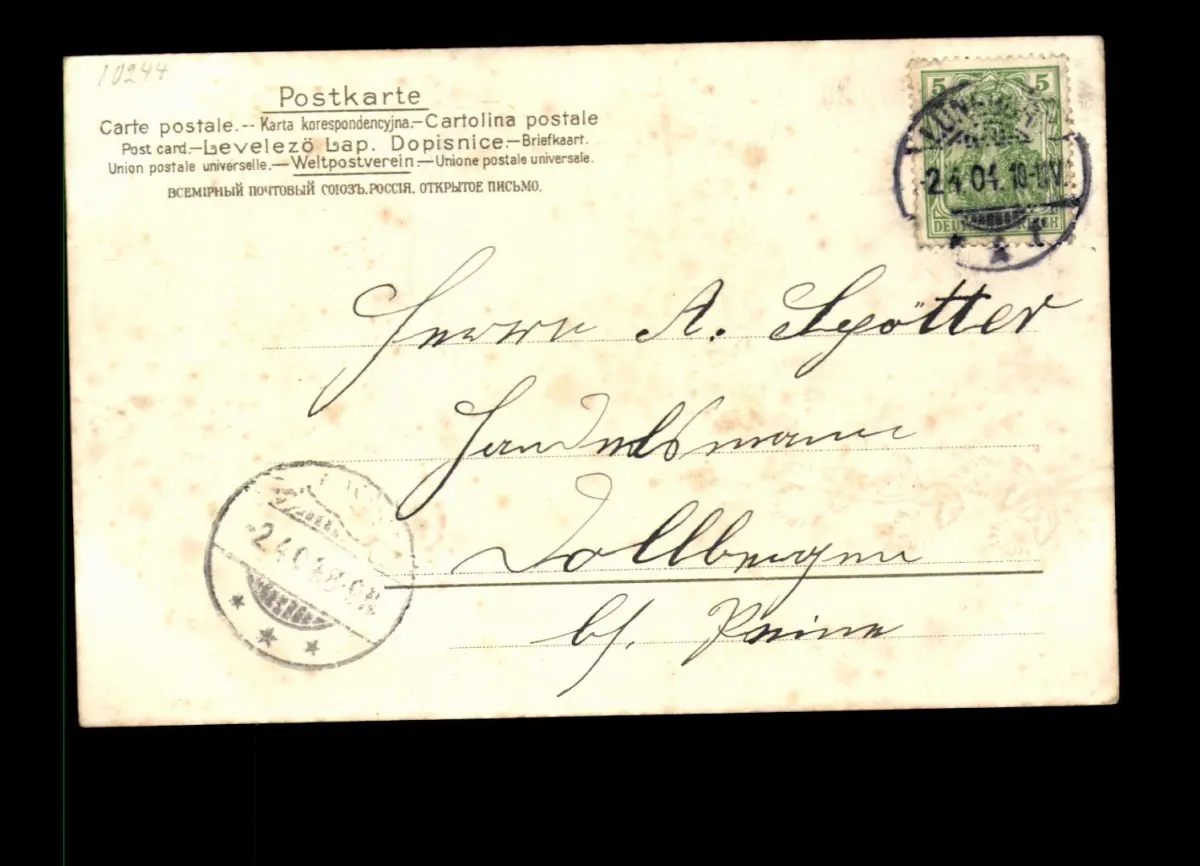 10244
Postkarte
Carte postale.-- Karta korespondencyjna.—Cartolina postale
Post card.—Levelezö Lap. Dopisnice.—Briefkaart.
Union postale universelle.—Weltpostverein.—Unione postale universale.
ВСЕМІРНЫЙ ПОЧТОВЫЙ СОЮЗЪ.РОССІЯ. ОТКРЫТОЕ ПИСЬМО.
5 5
-2.4.04. 10-11V.
Herrn A.
Handelsmann
Dollbergen
-2.4.04.
b/. Peine